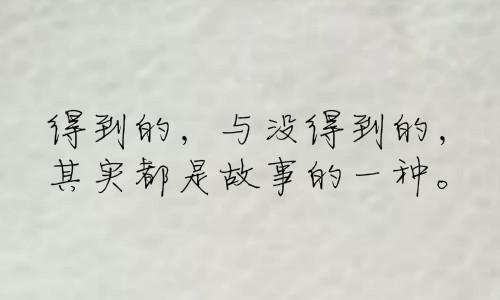 得到的，与没得到的，
其实都是故事的一种。